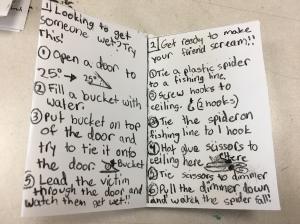 1 Looking to get
someone wet? Try
this!
① Open a door to
25° → 25°
② Fill a bucket with
water.
③ Put bucket on top
of the door and
try to tie it onto
the door. Bucket
⑤ Lead, the victim
through the door and
watch them get wet!!
2 Get ready to make
your friend scream!!
① Tie a plastic spider
to a fishing line.
② Screw hooks to
ceiling. (2 hooks)
③ Tie the spider on
fishing line to 1 hook
④ Hot glue scissors to
ceiling here here
⑤ Tie scissors to dimmer
⑥ Pull the dimmer down
and watch the spider fall!